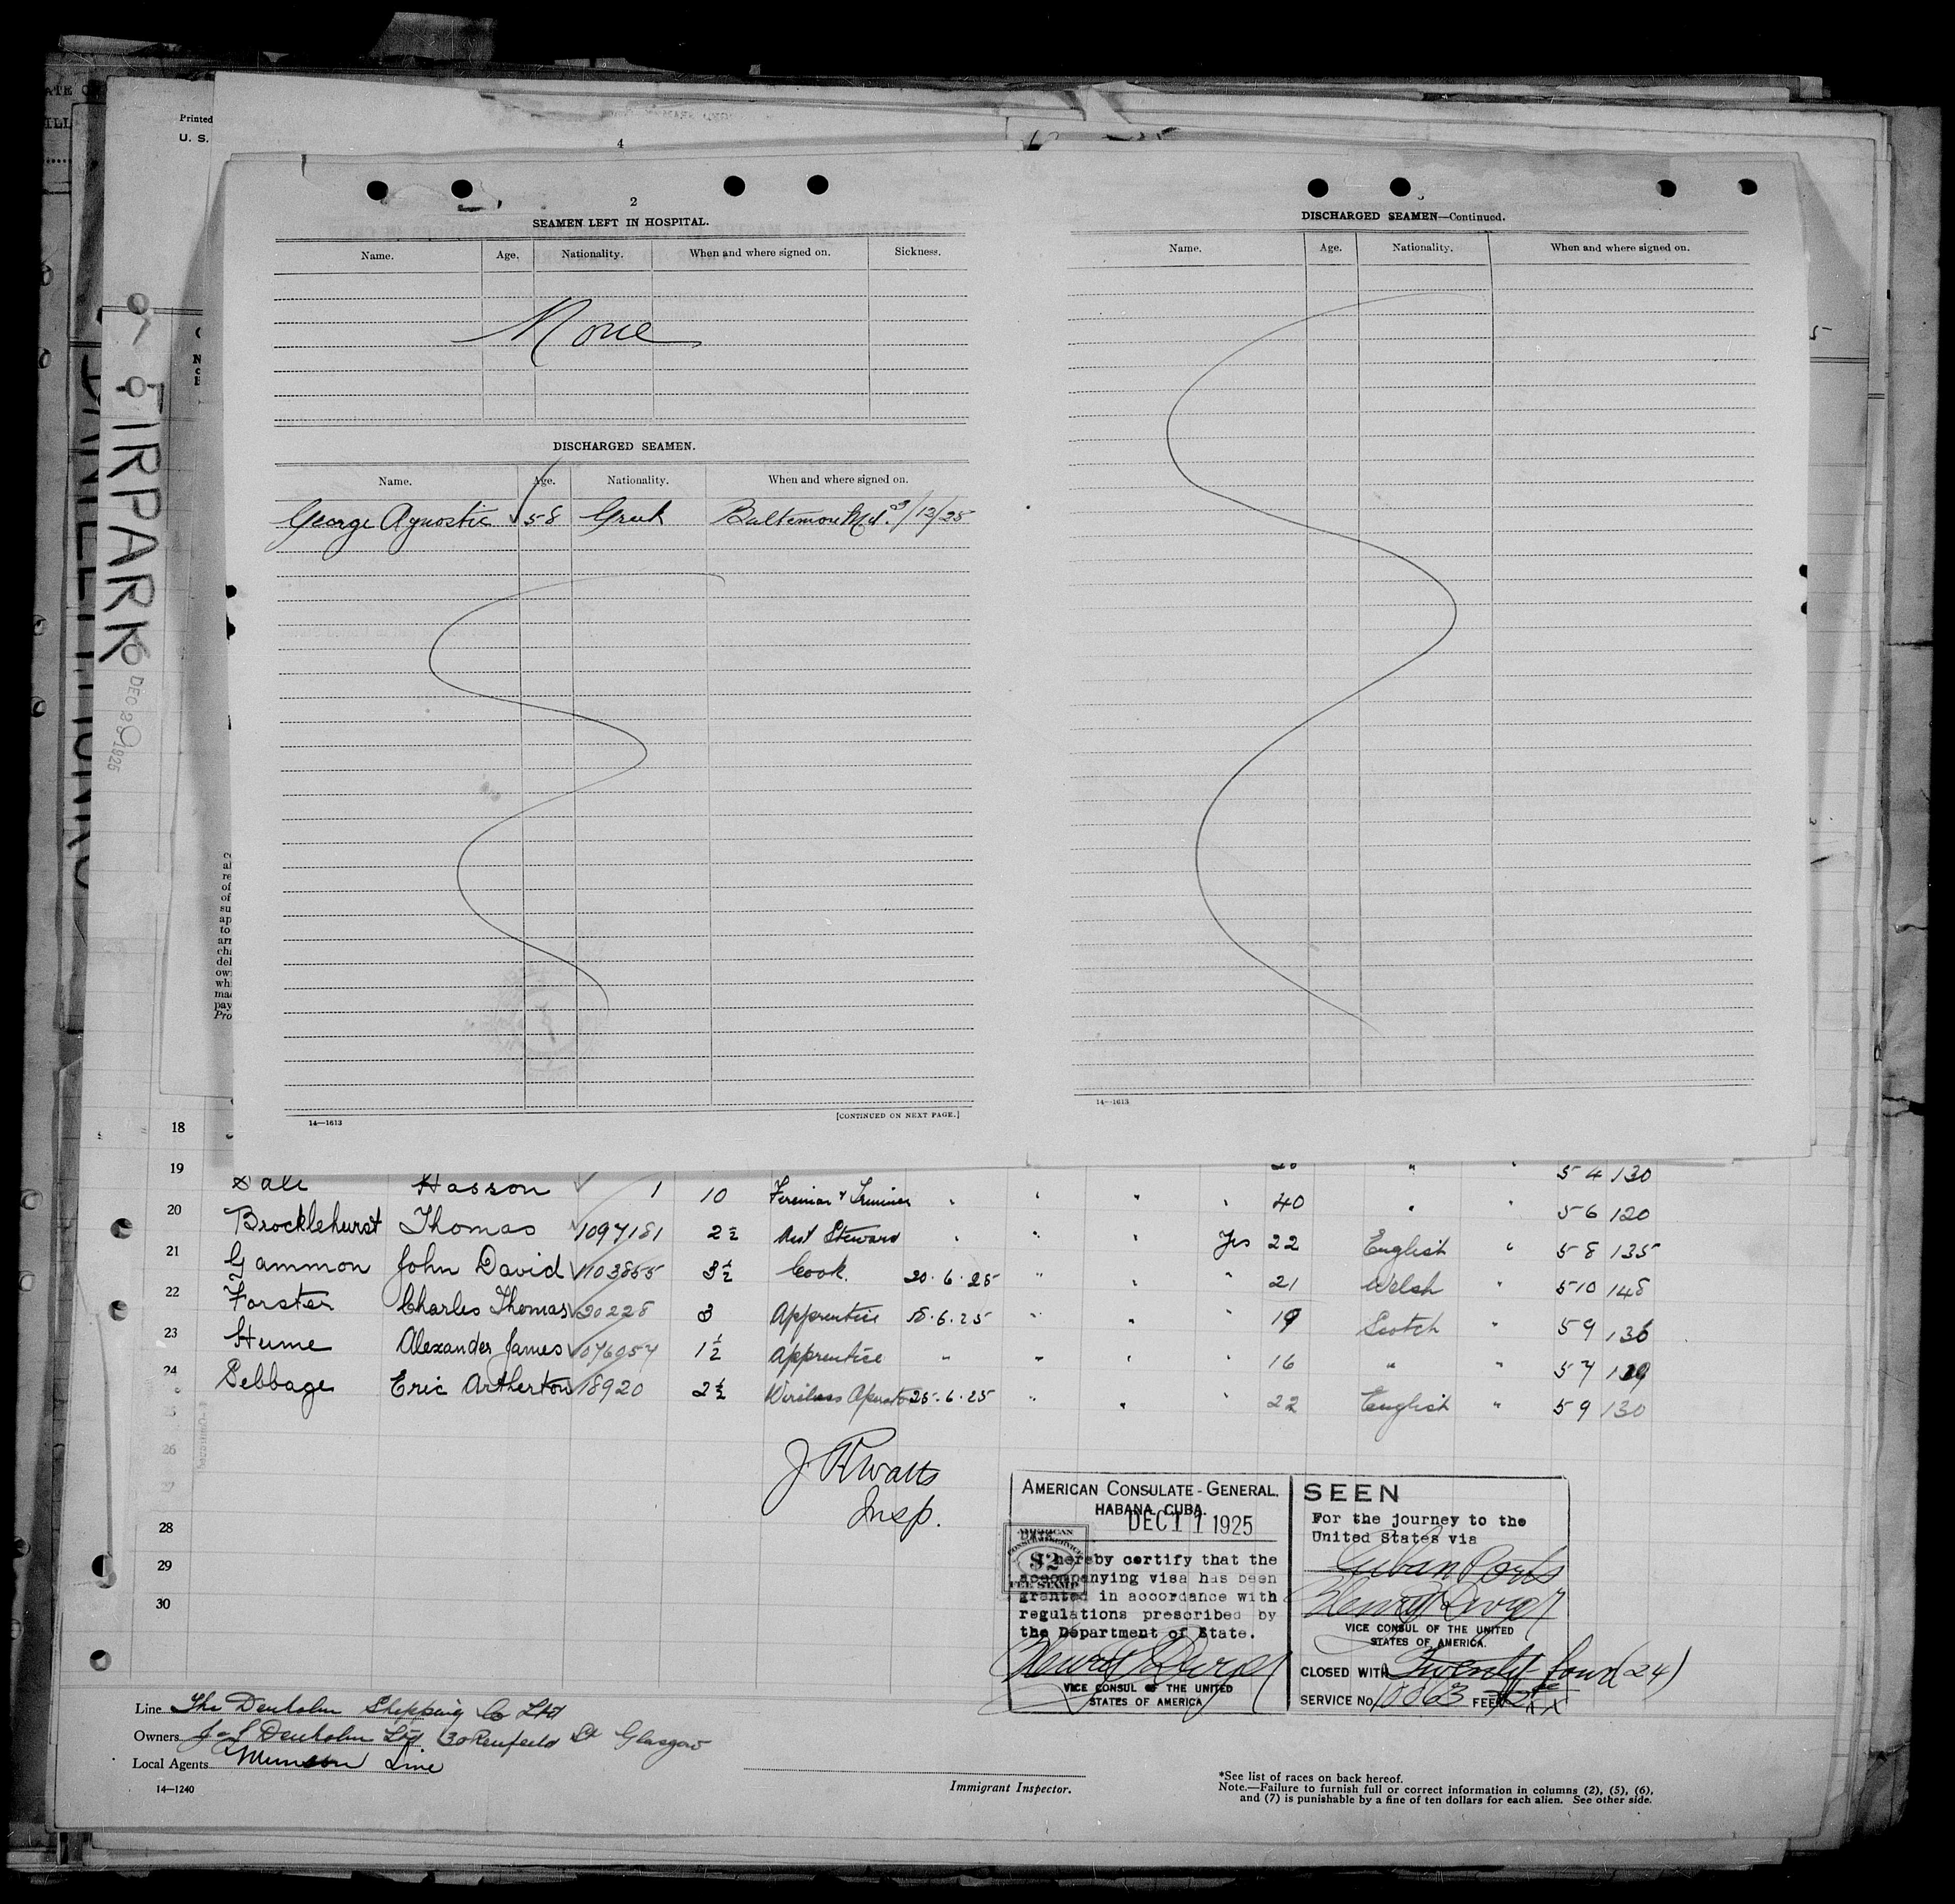 Printed
U. S.
4
FIRPARK
DEC 29 1925
2
SEAMEN LEFT IN HOSPITAL.
Name. Age. Nationality. When and where signed on. Sickness.
None
DISCHARGED SEAMEN.
Name. Age. Nationality. When and where signed on.
George Agnostic 58 Greek Baltimore Md. 3/12/25
[CONTINUED ON NEXT PAGE.]
14—1613
DISCHARGED SEAMEN—Continued.
Name. Age. Nationality. When and where signed on.
14—1613
18
19 5 4 130
Sale Hasson 1 10 Fireman & Trimmer " " " " 40 " 5 6 120
20 Brocklehurst Thomas 1097181 2½ Asst Steward " " " Yes 22 English " 5 8 135
21 Gammon John David 1103855 3½ Cook. 20.6.25 " " " 21 Welsh " 5 10 148
22 Forster Charles Thomas 30228 3 Apprentice 15.6.25 " " " 19 Scotch " 5 9 136
23 Hume Alexander James 1076057 1½ Apprentice " " " " 16 " " 5 7
24 Sebbage Eric Artherton 18920 2½ Wireless Operator 25.6.25 " " " 22 English " 5 9 130
25
26
27
28
29
30
J R Watts
Insp.
AMERICAN CONSULATE-GENERAL.
HABANA, CUBA.
DEC 11 1925
I hereby certify that the
accompanying visa has been
granted in accordance with
regulations prescribed by
the Department of State.
VICE CONSUL OF THE UNITED
STATES OF AMERICA
AMERICAN
CONSULAR SERVICE
$2
FEE STAMP
SEEN
For the journey to the
United States via
Cuban Ports
VICE CONSUL OF THE UNITED
STATES OF AMERICA.
CLOSED WITH Twenty-four (24)
SERVICE No. 10063 FEE
Line The Denholm Shipping Co Ltd
Owners J & J Denholm Ltd Glasgow
Local Agents Munson Line
14—1240
Immigrant Inspector.
*See list of races on back hereof.
Note.—Failure to furnish full or correct information in columns (2), (5), (6),
and (7) is punishable by a fine of ten dollars for each alien. See other side.